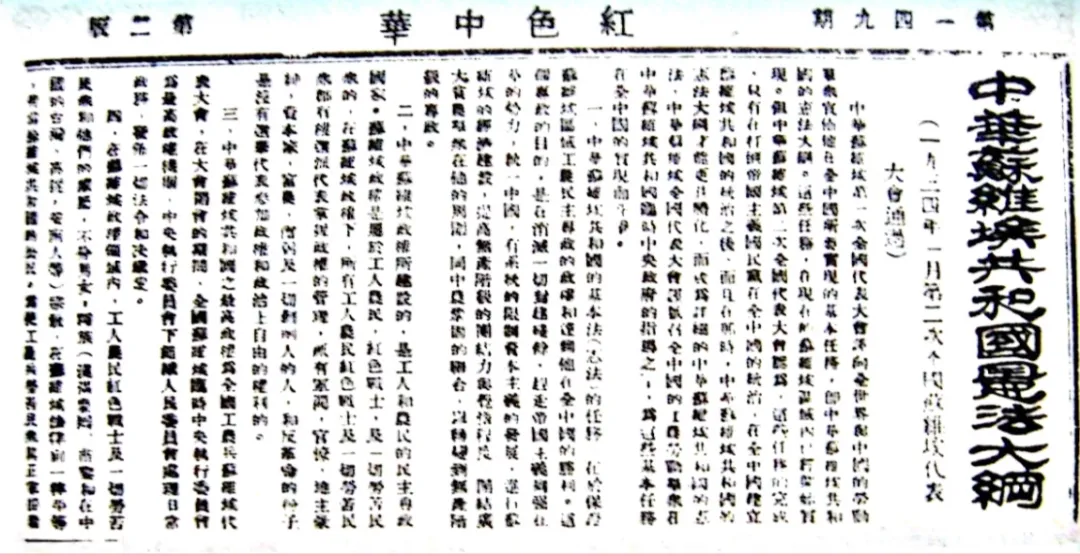 第一四九期
紅色中華
第二版
中華蘇維埃共和國憲法大綱
(一九三四年一月第二次全國蘇維埃代表
大會通過)
中華蘇維埃第一次全國代表大會謹向全世界與中國的勞動
羣衆宣佈他在全中國所要實現的基本任務,即中華蘇維埃共和
國的憲法大綱。這些任務,在現在的蘇維埃區域內已經開始實
現。但中華蘇維埃第一次全國代表大會認爲,這些任務的完成
,只有在打倒帝國主義國民黨在全中國的統治,在全中國建立
蘇維埃共和國的統治之後,而且在那時,中華蘇維埃共和國的
憲法大綱才能更具體化,而成爲詳細的中華蘇維埃共和國的憲
法,中華蘇維埃全國代表大會謹號召全中國的工農勞動羣衆在
中華蘇維埃共和國臨時中央政府的指導之下,爲這些基本任務
在全中國的實現而鬥爭。
一,中華蘇維埃共和國的基本法(憲法)的任務,在於保證
蘇維埃區域工農民主專政的政權和達到他在全中國的勝利。這
個專政的目的,是在消滅一切封建殘餘,趕走帝國主義列強在
華的勢力,統一中國,有系統的限制資本主義的發展,進行蘇
維埃的經濟建設,提高無產階級的團結力與覺悟程度,團結廣
大貧農羣衆在他的周圍,同中農鞏固的聯合,以轉變到無產階
級的專政。
二,中華蘇維埃政權所建設的,是工人和農民的民主專政
國家。蘇維埃政權是屬於工人農民,紅色戰士,及一切勞苦民
衆的,在蘇維埃政權下,所有工人農民紅色戰士及一切勞苦民
衆都有權選派代表掌握政權的管理,只有軍閥,官僚,地主豪
紳,資本家,富農,僧侶及一切剝削人的人,和反革命的份子
是沒有選舉代表參加政權和政治上自由的權利的。
三,中華蘇維埃共和國之最高政權爲全國工農兵蘇維埃代
表大會,在大會閉會的期間,全國蘇維埃臨時中央執行委員會
爲最高政權機關,中央執行委員會下組織人民委員會處理日常
政務,發佈一切法令和決議案。
四,在蘇維埃政權領域內,工人農民紅色戰士及一切勞苦
民衆和他們的家屬,不分男女,種族
宗教,在蘇維埃法律前一律平等